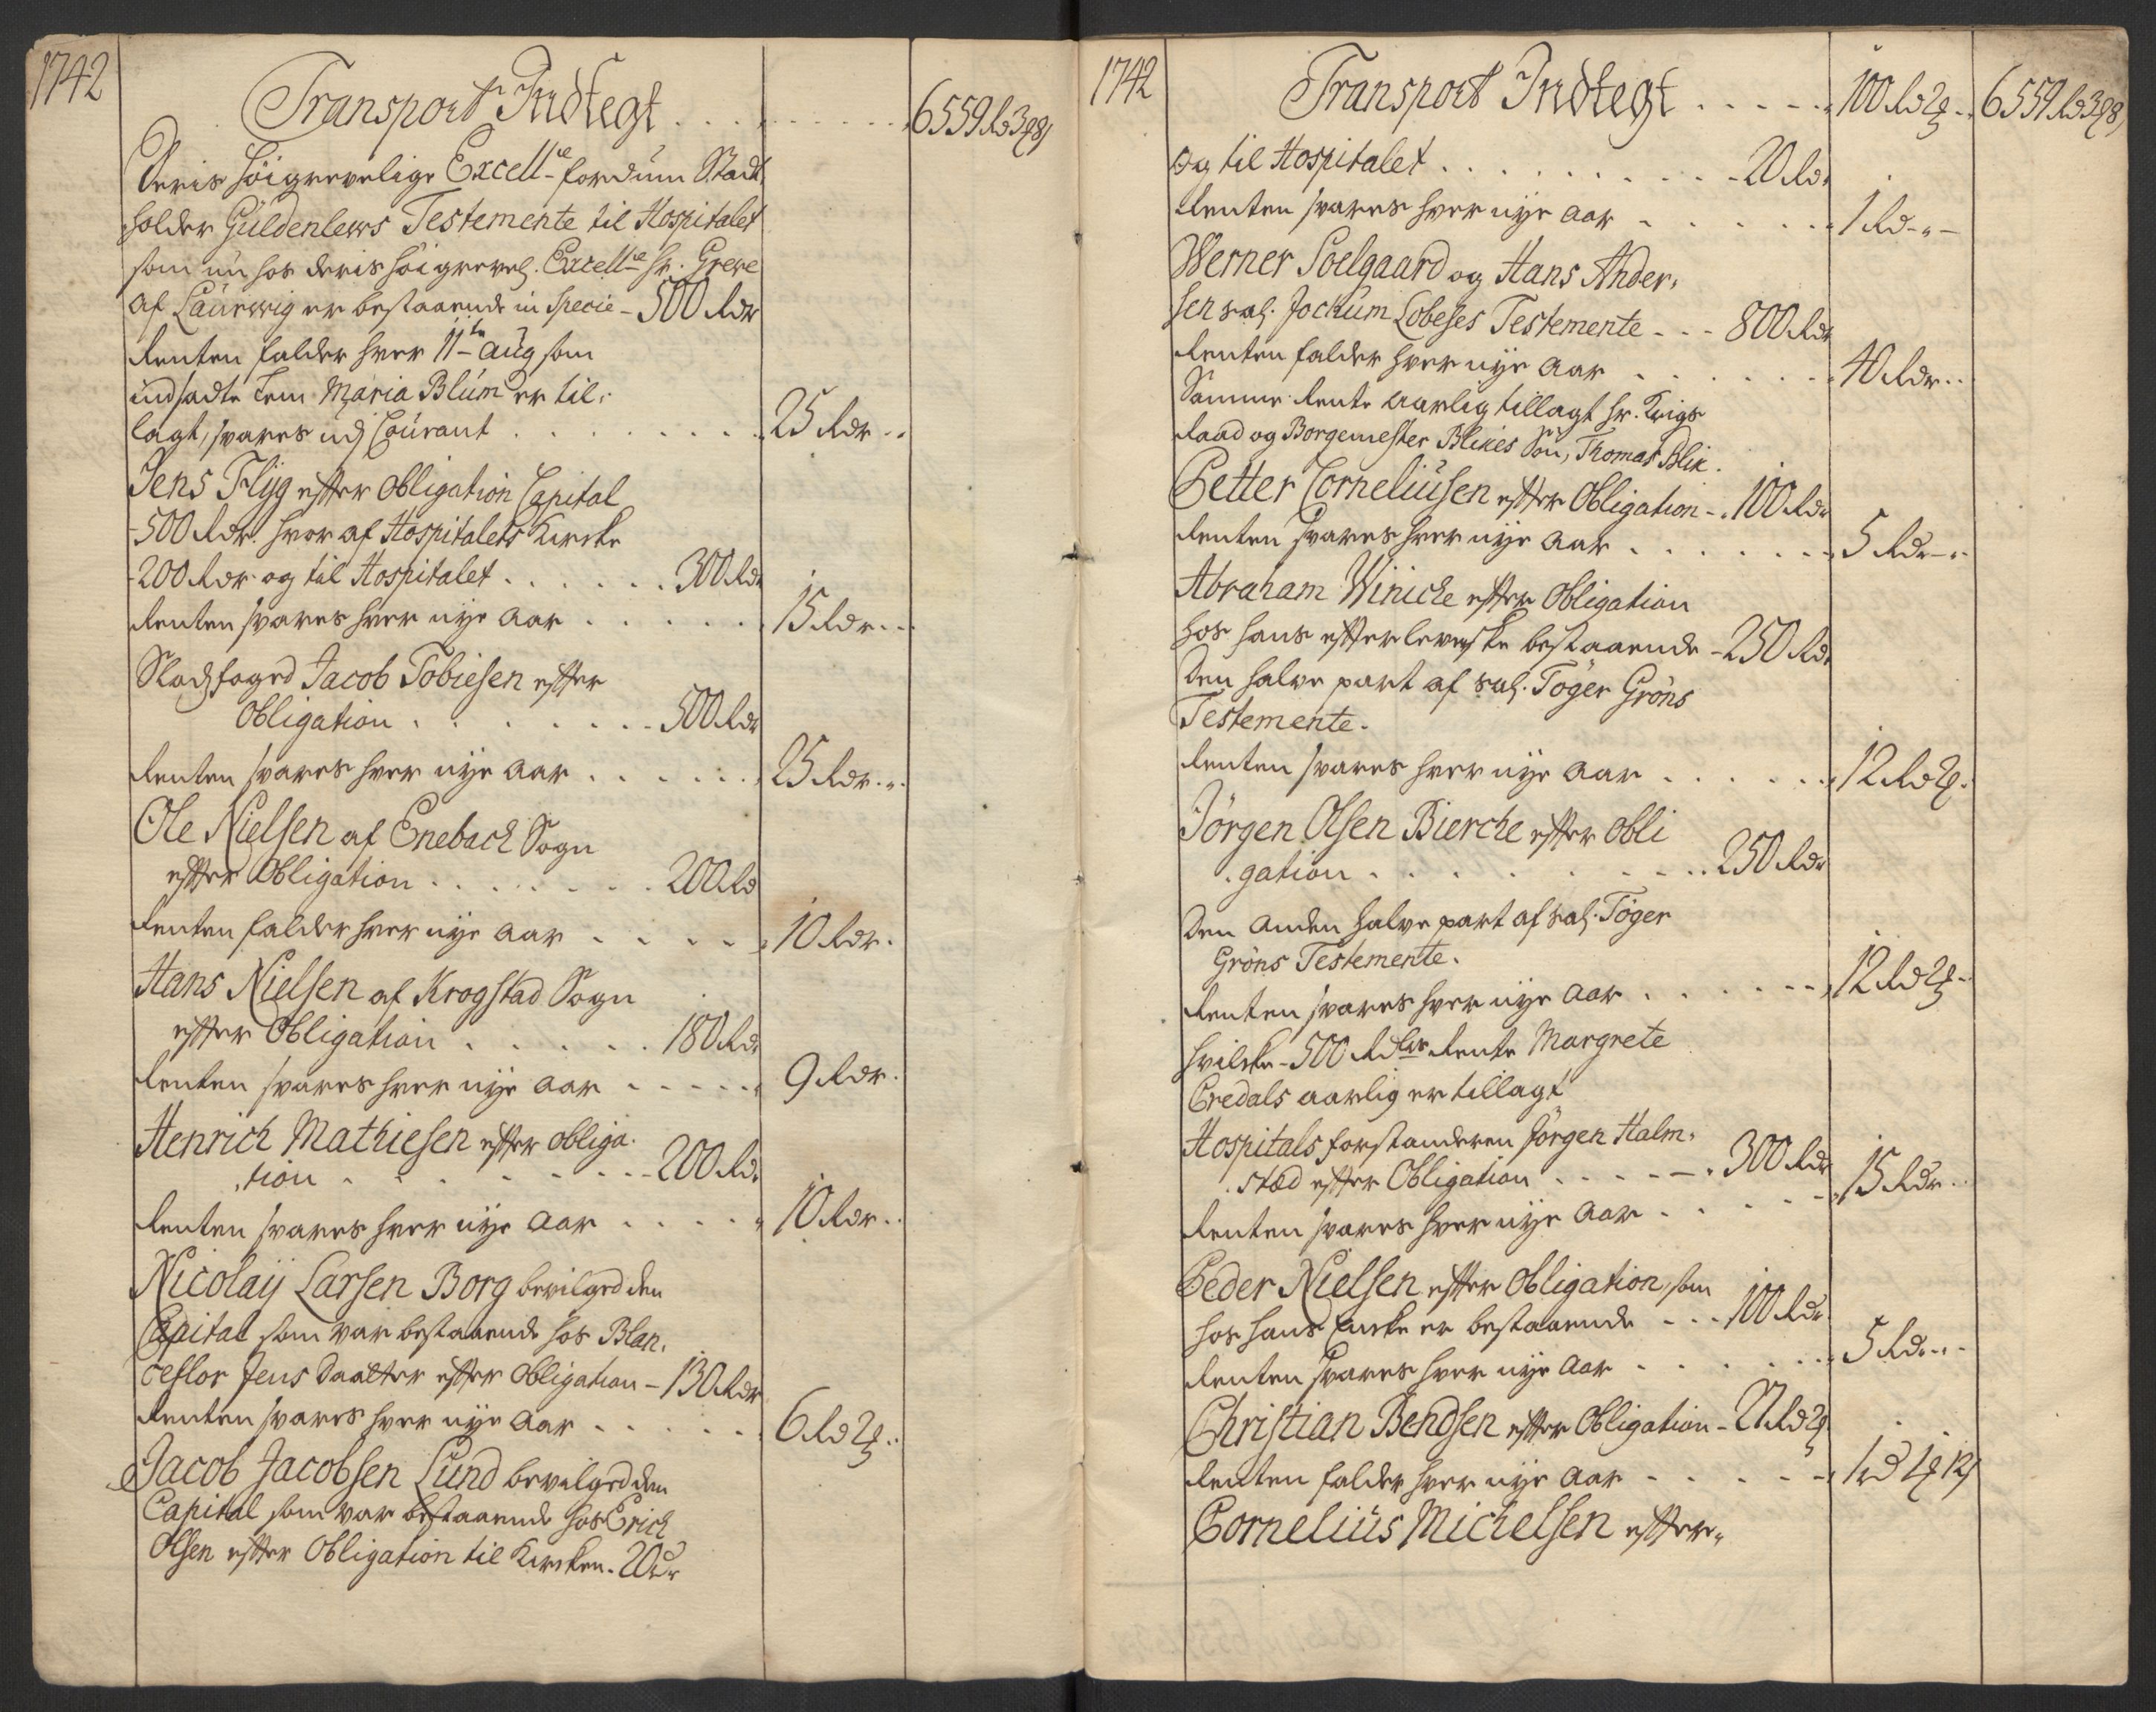 1742
Transport Indtegt . . . . . . . . 6559 Rd 3 ₰ 8 s
Deris Høigrevelige Excell:ce fordum Stadt,
holder Güldenlews Testemente til Hospitalet
som nu hos deris høigrevel: Excell:ce Hr. Greve
af Laürwig er bestaaende in Specie - 500 Rdr
Renten falder hver 11te Aug som
indsadte Lem Maria Blüm er til,
lagt, svares udj Coürant . . . . . . . 25 Rdr - "
Jens Flÿg efter Obligation Capital
- 500 Rdr. hvor af Hospitalets Kircke
- 200 Rdr og til Hospitalet . . . . . . 300 Rd
Renten svares hver nye Aar . . . . . . 15 Rdr - "
Stadfoged Jacob Tobiesen efter
Obligation . . . . . . . 500 Rdr
Renten svares hver nye Aar . . . . . . 25 Rdr - "
Ole Nielsen af Enebach Sogn
efter Obligation . . . . . . . 200 Rd
Renten falder hver nye Aar . . . . . 10 Rdr .
Hans Nielsen af Krogstad Sogn
efter Obligation . . . . . . 180 Rd
Renten svares hver nye Aar . . . . . 9 Rdr .
Henrich Mathiesen efter obliga,
,tion . . . . . . . 200 Rd
Renten svares hver nye Aar . . . . . 10 Rdr . .
Nicolaij Larsen Borg bevilged den
Capital som var bestaaende hos Blan,
Jens Daalter efter Obligation - 130 Rdr
Renten svares hver nye Aar . . . . . . 6 Rd 2 ₰ . .
Jacob Jacobsen Lund bevilged den
Capital som var bestaaende hos Erich
Olsen efter Obligation til Kircken . 20 Rdr
1742
Transport Indtegt . . . . . 100 Rd 2 ₰ - 6559 Rd 3 ₰ 8 s
og til Hospitalet . . . . . . . . . . 20 Rd
Renten svares hver nye Aar . . . . . . 1 Rd - " -
Werner Soelgaard og Hans Ander,
sen sal. Jochüm Lobeses Testemente - - - 800 Rdr
Renten falder hver nye Aar . . . . . . 40 Rdr . .
Samme Rente Aarlig tillagt Hr. Krigs
Raad og Borgemester Blikes Søn, Thomas Blik .
Petter Corneliüsen efter Obligation - 100 Rdr
Renten svares hver nye Aar . . . . . . . 5 Rdr - "
Abraham Winiche efter Obligation
hos hans efterleverske bestaaende - 250 Rd
Den halve part af sal. Töger Gröns
Testemente .
Renten svares hver nye Aar . . . . . . 12 Rd 2 ₰ .
Jörgen Olsen Bierche efter Obli
. gation . . . . . . . . . 250 Rdr
Den Anden halve part af sal. Töger
Gröns Testemente .
Renten svares hver nye Aar . . . . . . 12 Rd 2 ₰ -
hvilcke - 500 Rdlrs Rente Margrete
Credals aarlig er tillagt
Hospitals forstanderen Jörgen Halm,
. stæd efter Obligation . . . . . . 300 Rdr
Renten svares hver nye Aar . . . . . 15 Rdr . .
Peder Nielsen efter Obligation, som
hos hans Encke er bestaaende - - - 100 Rdr
Renten svares hver nye Aar . . . . . . 5 Rd - " -
Christian Bendsen efter Obligation - 27 Rd 2 ₰
Renten falder hver nye Aar . . . . . 1 rd 1 ₰ 12 s
Cornelius Michelsen efter "